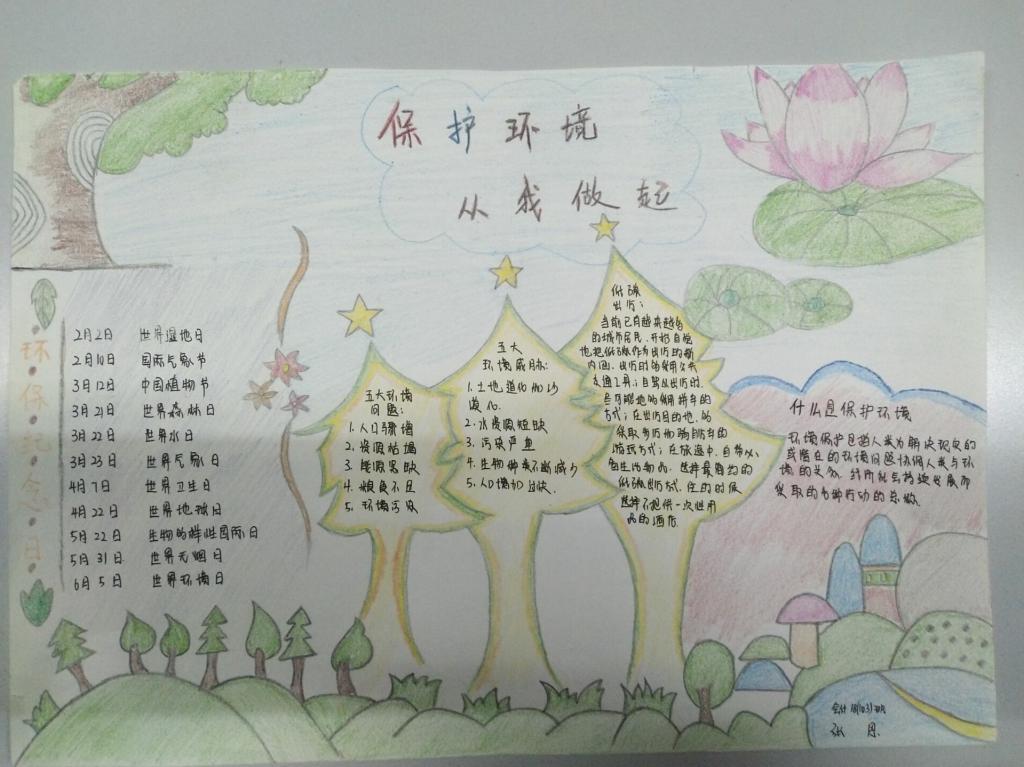 保护环境
从我做起
环保纪念日
2月2日 世界湿地日
2月10日 国际气象节
3月12日 中国植物节
3月21日 世界森林日
3月22日 世界水日
3月23日 世界气象日
4月7日 世界卫生日
4月22日 世界地球日
5月22日 生物多样性国际日
5月31日 世界无烟日
6月5日 世界环境日
五大环境
问题:
1. 人口骤增
2. 资源枯竭
3. 能源害缺
4. 粮食不足
5. 环境污染
五大
环境威胁:
1. 土地退化和沙
漠化.
2. 水资源短缺
3. 污染严重
4. 生物种类不断减少
5. 人口增加过快.
低碳
出行:
当前已有越来越多
的城市居民,开始自检
地把低碳作为出行的新
内涵.出行时多采用公共
交通工具;自驾出行时.
尽可能地多采用拼车的
方式;在出行目的地,多
采取步行和骑自行车的
游玩方式;在旅途中,自带必
备生活物品,选择最简约的
低碳出行方式,住的时候
选择不提供一次性用
品的酒店
什么是保护环境
环境保护包括人类为解决现实的
或潜在的环境问题协调人类与环
境的关系.
采取的各种行动的总称.